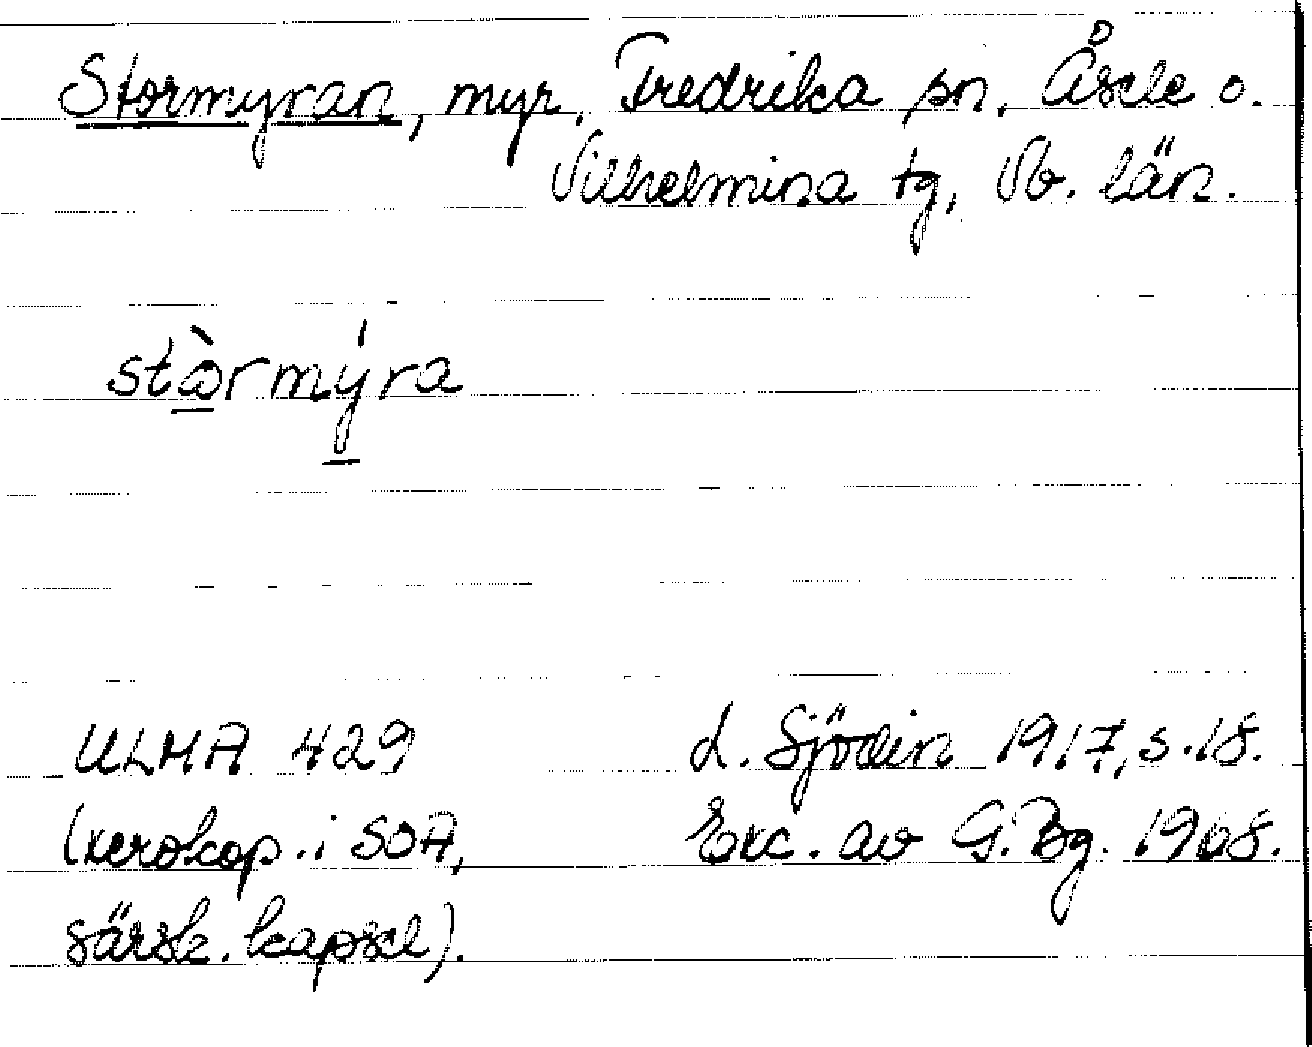 Stormyran, myr, Fredrika sn, Åsele o.
Vilhelmina tg, Vb. län.
stòrmýra
ULMA 429
(xerokop. i SOA,
särsk. kapsel).
L. Sjödin 1917, s. 18.
Exc. av G. Bg. 1968.